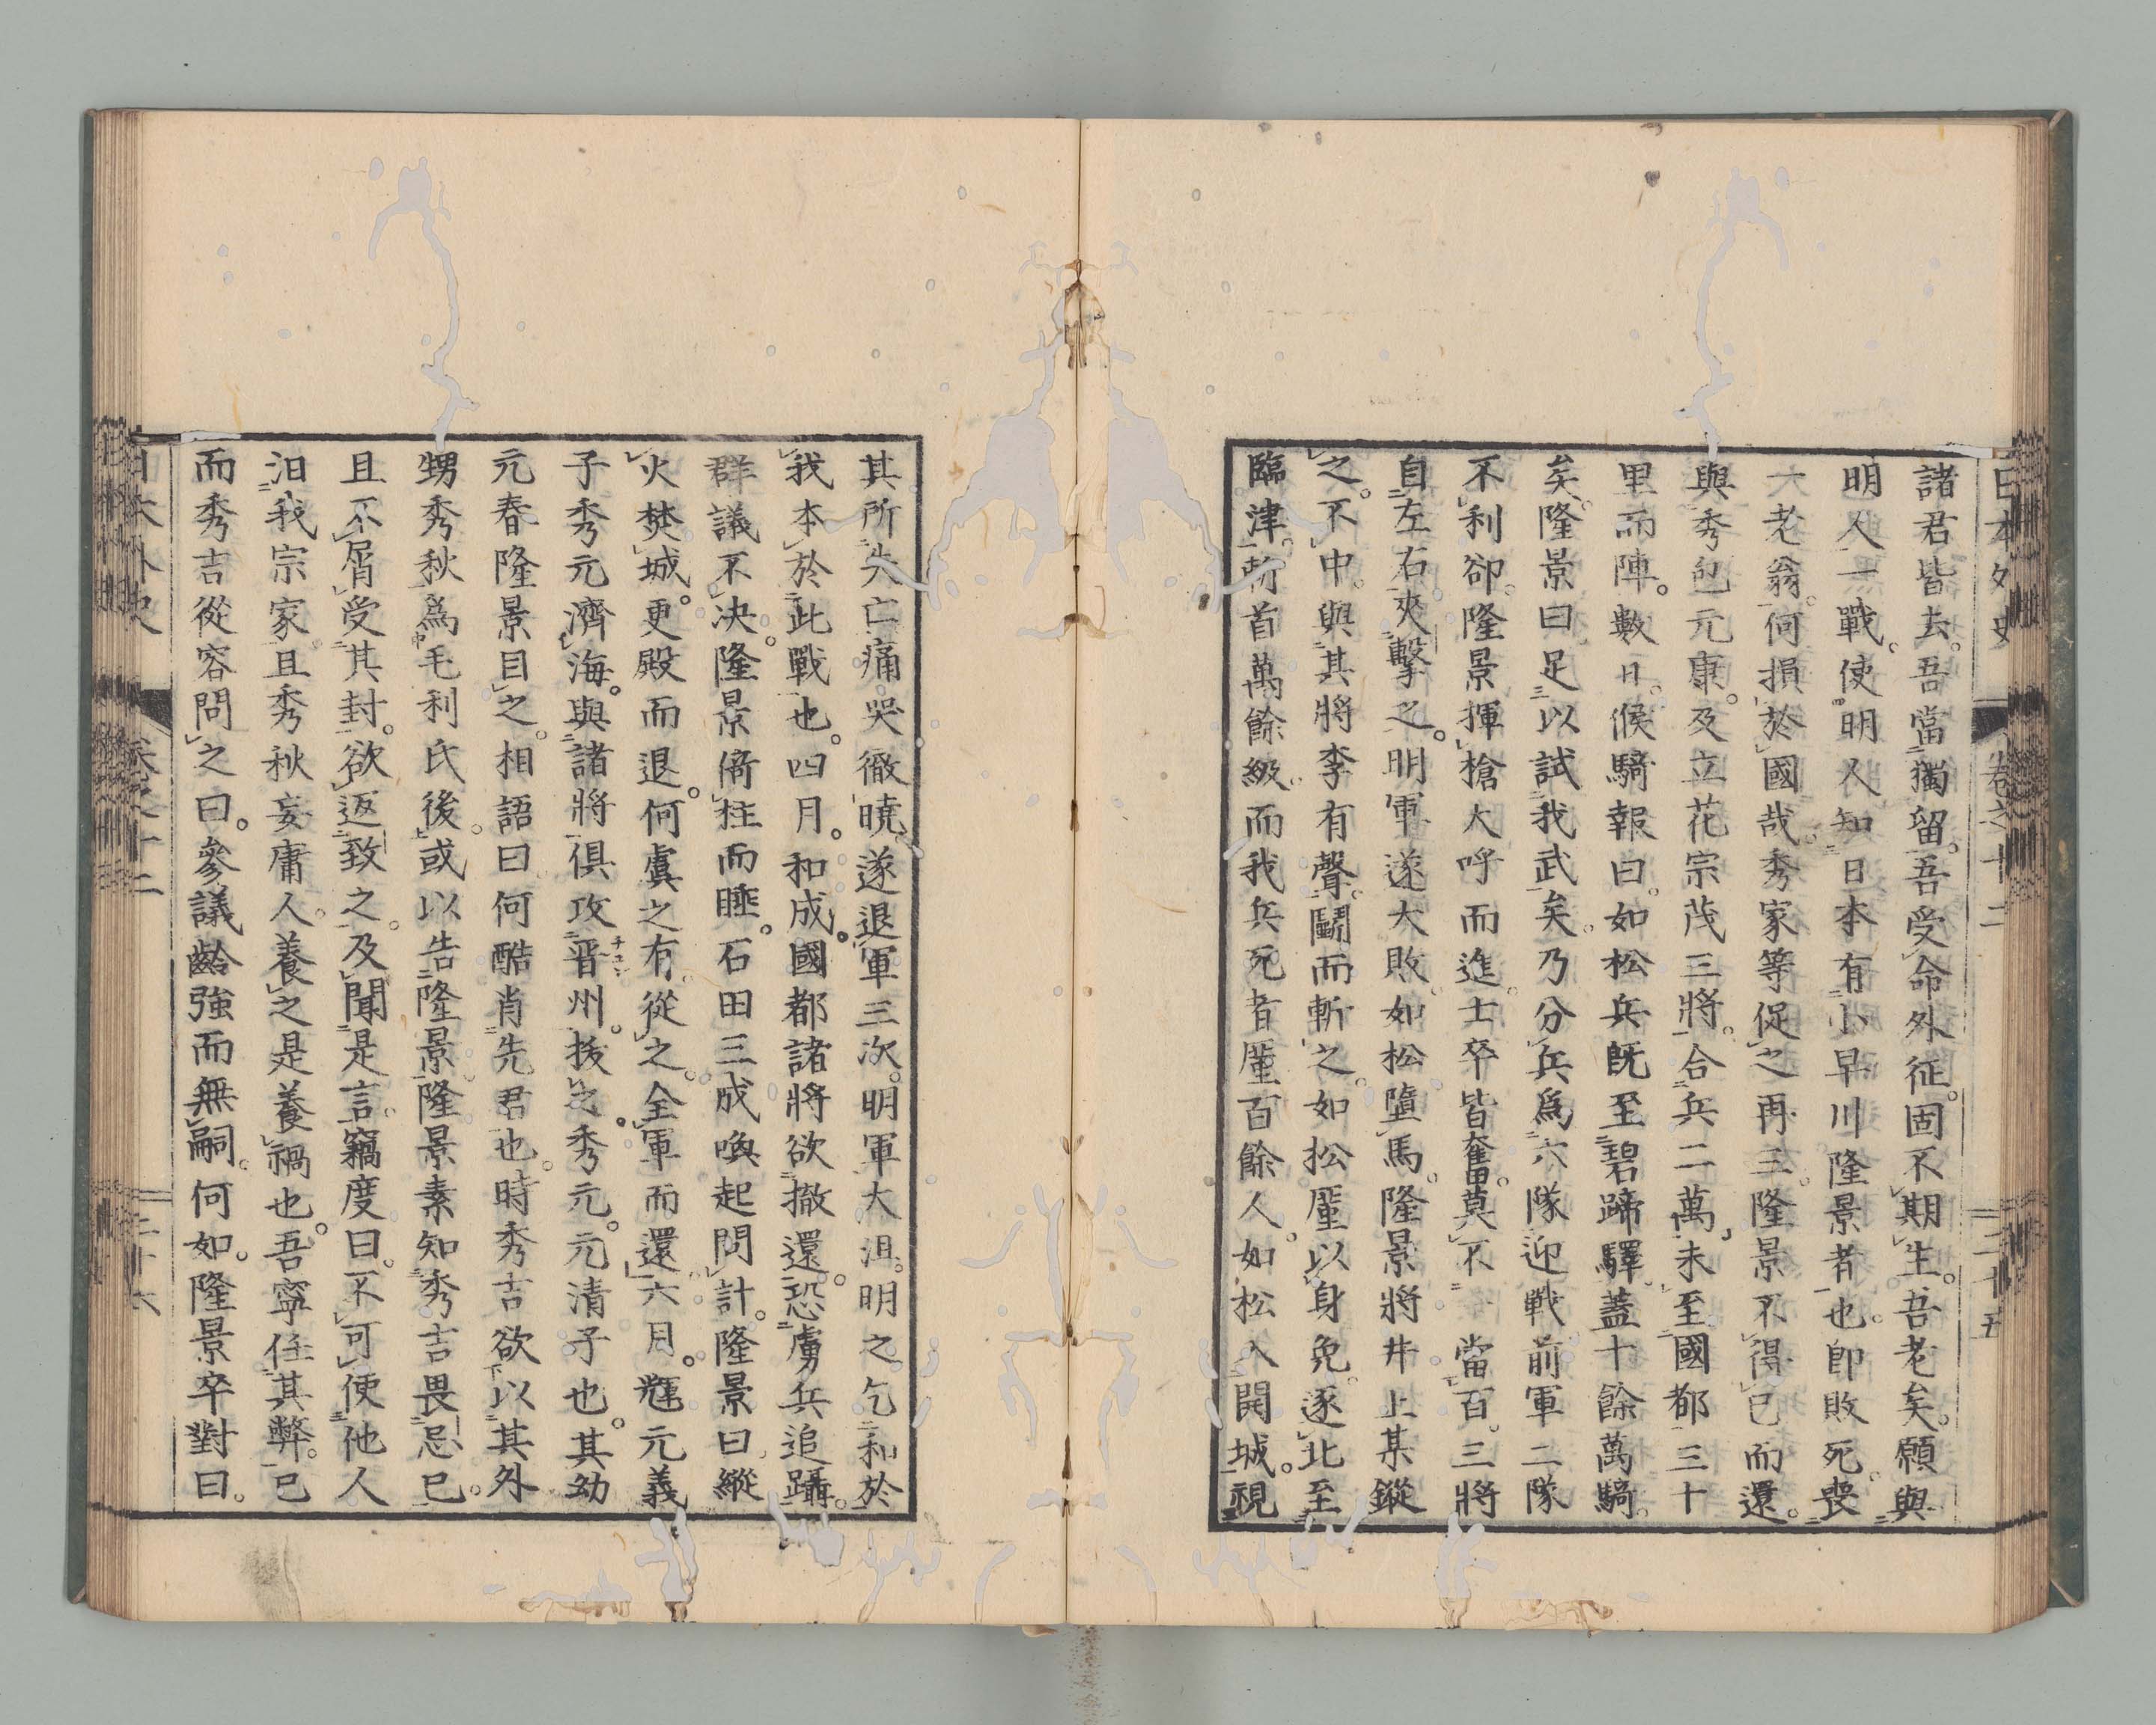 日本外史 卷之十二 二十五
諸君皆去。吾當獨留。吾受命外征。固不期生。吾老矣。願與
明人一戰。使明人知日本有小早川隆景者也。卽敗死。喪
一老翁。何損於國哉。秀家等促之再三。隆景不得已而還。
與秀包元康。及立花宗茂三將。合兵二萬。未至國都三十
里而陣。數日。候騎報曰。如松兵既至碧蹄驛。蓋十餘萬騎。
矣。隆景曰。足以試我武矣。乃分兵爲六隊迎戰。前軍二隊
不利卻。隆景揮槍大呼而進。士卒皆奮。莫不一當百。三將
自左右夾擊之。明軍遂大敗。如松墮馬。隆景將井上某鏦
之。不中。與其將李有聲鬪而斬之。如松厪以身免。逐北至
臨津。斬首萬餘級。而我兵死者厪百餘人。如松入開城。視
其所失亡。痛哭徹曉。遂退軍三次。明軍大沮。明之乞和於
我。本於此戰也。四月。和成。國都諸將欲撤還。恐虜兵追躡。
群議不決。隆景倚柱而睡。石田三成喚起問計。隆景曰。縱
火焚城。更殿而退。何虞之有。從之。全軍而還。六月。輝元義
子秀元濟海。與諸將俱攻晋州。拔之。秀元。元清子也。其幼
元春隆景目之。相語曰。何酷肖先君也。時秀吉欲以其外
甥秀秋爲毛利氏後。或以告隆景。隆景素知秀吉畏忌已。
且不屑受其封。欲返致之。及聞是言。竊度曰。不可使他人
汨我宗家。且秀秋妄庸人。養之是養禍也。吾寧任其弊。已
而秀吉從容問之曰。參議齡強而無嗣。何如。隆景卒對曰。
日本外史 卷之十二 二十六